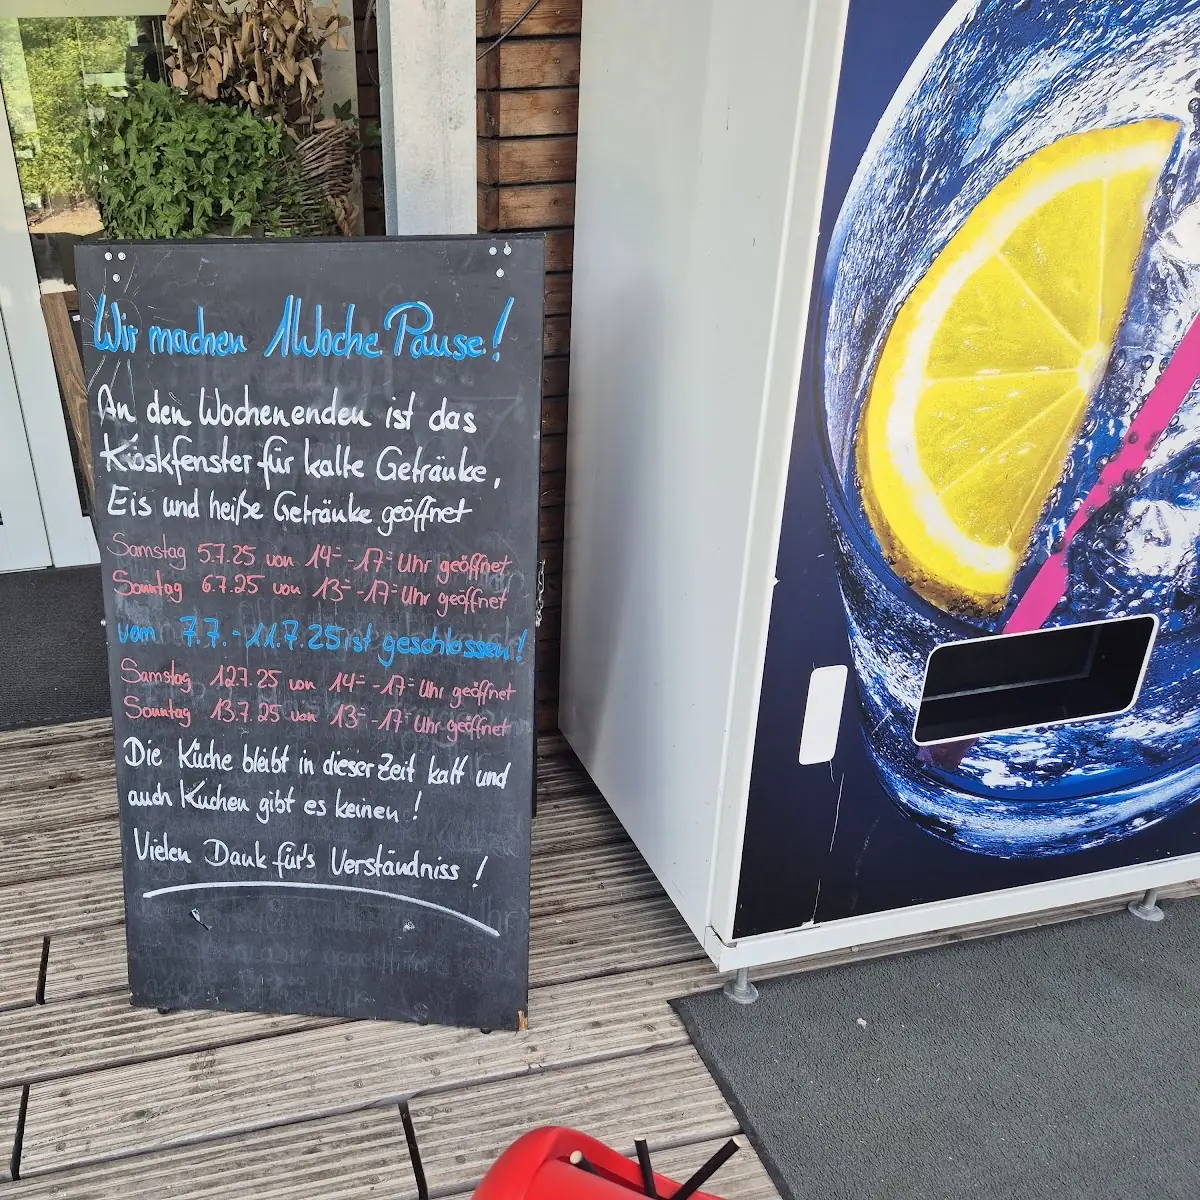 Wir machen 1 Woche Pause!
An den Wochenenden ist das
Kioskfenster für kalte Getränke,
Eis und heiße Getränke geöffnet
Samstag 5.7.25 von 14= -17= Uhr geöffnet
Sonntag 6.7.25 von 13= -17= Uhr geöffnet
vom 7.7. - 11.7.25 ist geschlossen!
Samstag 12.7.25 von 14= -17= Uhr geöffnet
Sonntag 13.7.25 von 13= -17= Uhr geöffnet
Die Küche bleibt in dieser Zeit kalt und
auch Kuchen gibt es keinen!
Vielen Dank für's Verständniss!